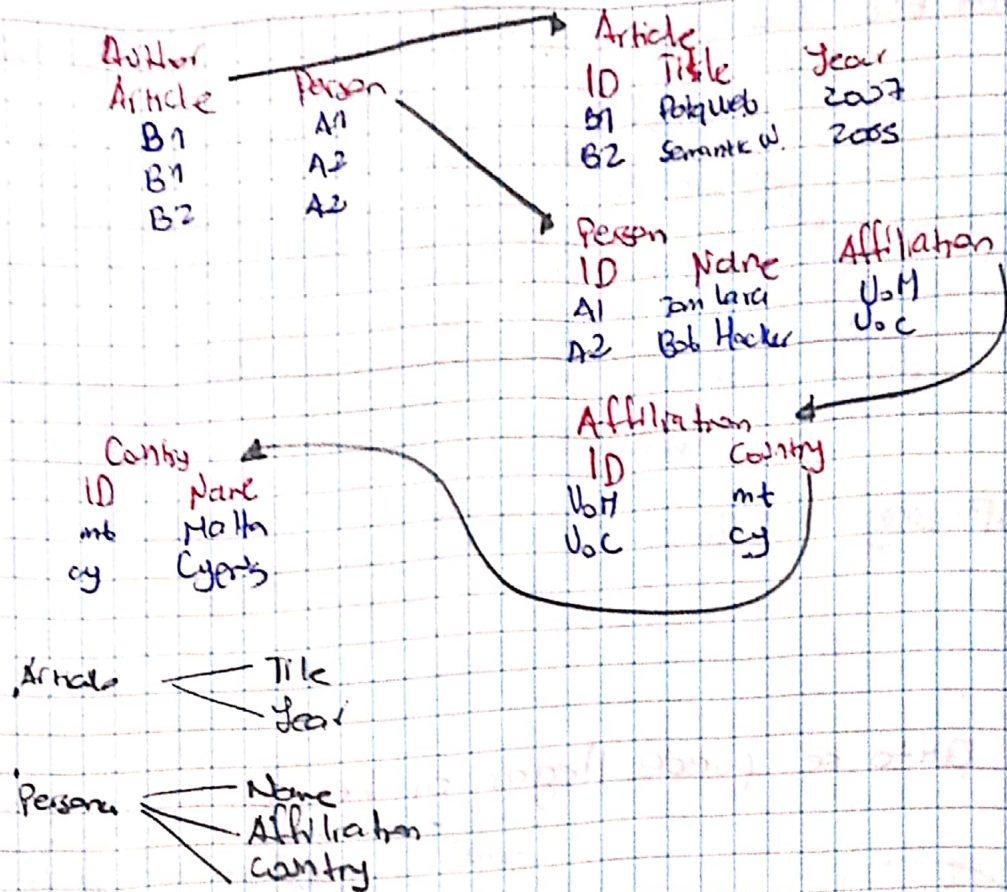 Author
Article Person
B1 A1
B1 A2
B2 A2
Article
ID Title Year
B1 2007
B2 Semantic W. 2005
Person
ID Name Affiliation
A1 Lara UoM
A2 Bob Hacker UoC
Affiliation
ID Country
UoM mt
UoC cy
Contry
ID Name
mt Malta
cy
Article
Tile
Year
Persona
Name
Affiliation
Country